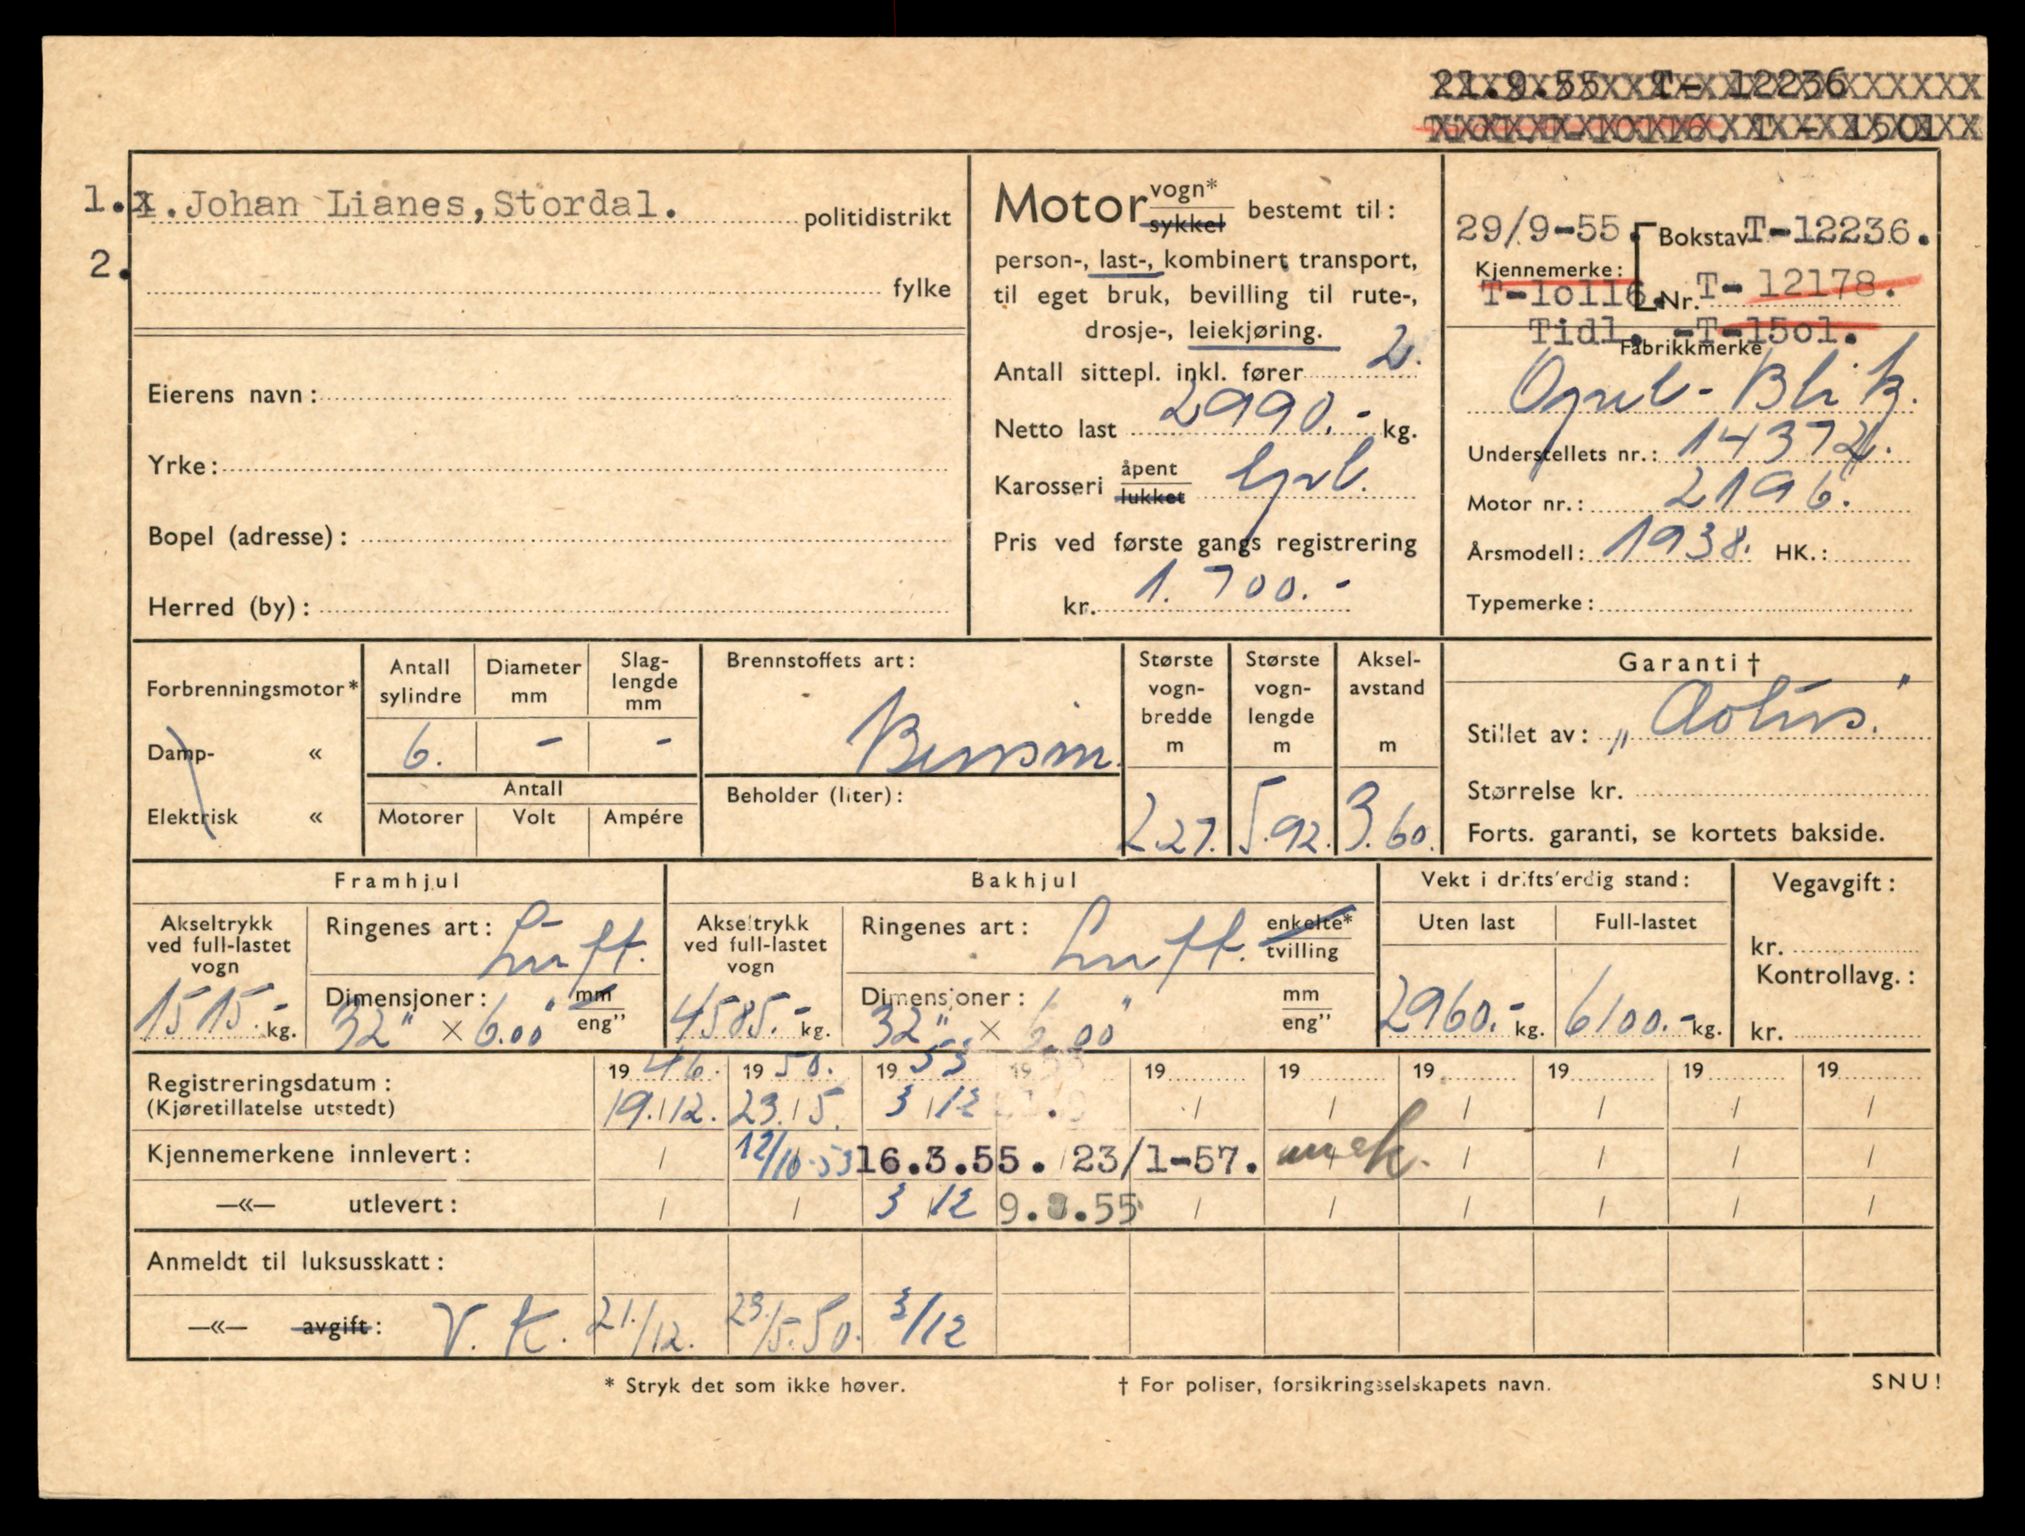 21.9.55 T- 12236
T - 1501
1. 1. Johan Lianes, Stordal. politidistrikt
2. fylke
Eierens navn:
Yrke:
Bopel (adresse):
Herred (by):
Motor vogn* / sykkel bestemt til:
person-, last-, kombinert transport,
til eget bruk, bevilling til rute-,
drosje-, leiekjøring.
Antall sittepl. inkl. fører 2.
Netto last 2990.- kg.
Karosseri åpent / lukket
Pris ved første gangs registrering
kr. 1.700.-
29/9-55. Bokstav T-12236.
Kjennemerke:
T-10116. Nr. T- 12178.
Tidl. -T-15o1.
Fabrikkmerke
Opel-Blitz.
Understellets nr.: 14372.
Motor nr.: 2196.
Årsmodell: 1938. HK.:
Typemerke:
Forbrenningsmotor*
Damp- «
Elektrisk «
Antall sylindre 6.
Diameter mm -
Slaglengde mm -
Antall
Motorer Volt Ampére
Brennstoffets art:
Bensin.
Beholder (liter):
Største vognbredde m 2.27.
Største vognlengde m 5.92.
Akselavstand m 3.60.
Garanti †
Stillet av:
Størrelse kr.
Forts. garanti, se kortets bakside.
Framhjul
Akseltrykk ved full-lastet vogn 1515.- kg.
Ringenes art: Luft.
Dimensjoner: 32" × 6.00" mm / eng"
Bakhjul
Akseltrykk ved full-lastet vogn 4585.- kg.
Ringenes art: Luft. enkelte* / tvilling
Dimensjoner: 32" × 6.00" mm / eng"
Vekt i driftsferdig stand:
Uten last 2960.- kg.
Full-lastet 6100.- kg.
Vegavgift:
kr.
Kontrollavg.:
kr.
Registreringsdatum: 1946. 1950. 1953 19 19 19 19 19 19 19
(Kjøretillatelse utstedt) 19/12. 23/5. 3/12
Kjennemerkene innlevert: 12/10-53 16.3.55. 23/1-57.
—«— utlevert: 3/12 9.8.55
Anmeldt til luksusskatt:
—«— avgift: V. K. 21./12. 23./5.50. 3/12
* Stryk det som ikke høver.
† For poliser, forsikringsselskapets navn.
SNU!